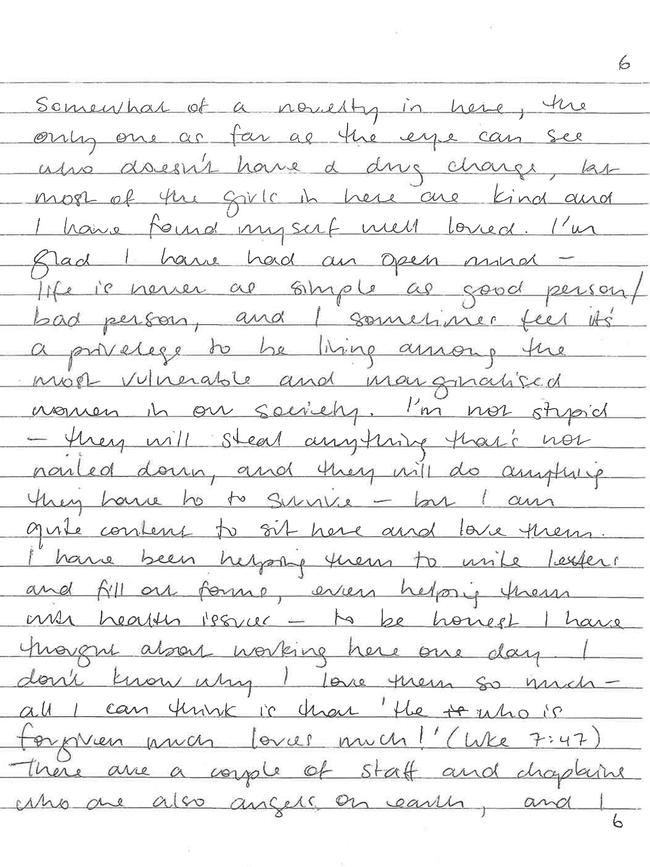 6
somewhat of a novelty in here, the
only one as far as the eye can see
who doesn't have a drug charge, but
most of the girls in here are kind and
I have found myself well loved. I'm
glad I have had an open mind -
life is never as simple as good person/
bad person, and I sometimes feel it's
a privelege to be living among the
most vulnerable and marginalised
women in our society. I'm not stupid
- they will steal anything that's not
nailed down, and they will do anything
they have to to survive - but I am
quite content to sit here and love them.
I have been helping them to write letters
and fill out forms, even helping them
with health issues - to be honest I have
thought about working here one day. I
don't know why I love them so much -
all I can think is that 'he who is
forgiven much loves much!' (Luke 7:47)
There are a couple of staff and chaplains
who are also angels on earth, and I
6